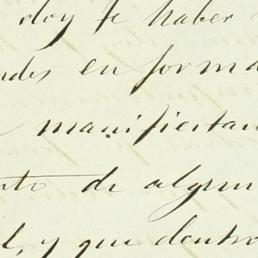 doy fe haber
ndes en forma
manifiestan
nto de algun
l, y que dentro